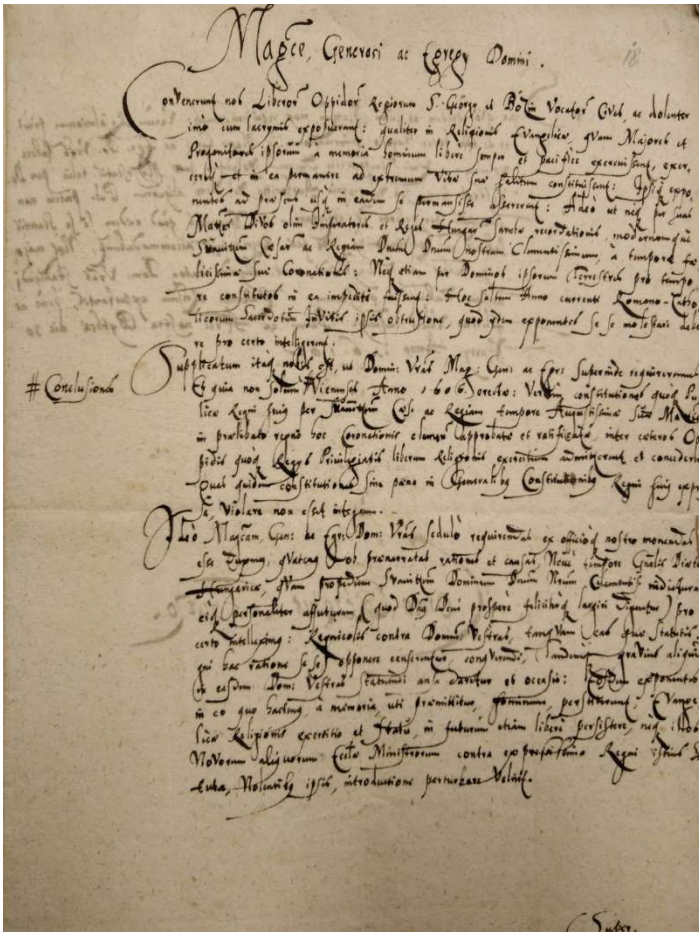 18
Magce, Generosi ac Egregy Domini.
Convenerunt nos Liberor Oppidor Regiorum S. Georgÿ et Bozin Vocator Cives, ac dolenter
imo cum lacrymis exposuerunt: qualiter in Religionis Evangelicæ, quam Majores et
Progenitores ipsorum à memoria hominum liberè semper et pacificè exercuissent, exer,
citio, et in ea permanere ad extremum Vitæ suæ halitum constituissent: Ipsiq expo,
nentes ad præsens usq in eadem se permansisse assererent: Adeò ut neq per suas
Mattes Divos olim Imperatores et Reges Hungar sanctæ recordationis, modernumq
Cæsar ac Regiam Dnum nostrum Clementissimum, à tempore fæ
licissimæ suæ Coronationis: Neq etiam per Dominos ipsorum Terrestres pro tempo,
re constitutos in ea impediti fuissent: Hoc saltem Anno currenti Romano-Catho
licorum Sacerdotum Invitis ipsis obtrusione, quod idem exponentes se se molestari debe
re pro certo intelligerent.
Supplicatum itaq nobis est, ut Domin: Vras Mag: Gen: ac Egr: Superinde requireremus
# Conclusiones
Et quia non solum Viennensis Anno 1606. erectæ: Verum constitutiones quoq Pu
licæ Regni huiq per Cæs. ac Regiam tempore Augustissimæ Suæ
in prælibato regno hoc Coronationis clementer approbatæ et ratificatæ, inter cæteros Op
pidis quoq Regys Privilegiatis liberum Religionis exercitium admitterent et concederent
Quas quidem constitutiones sine pæna in Generalibq Constitutionibq Regni huiq expr
sa Violare non esset integrum.
Ideo Magcam, Gen: ac Egr: Dom: Vras sedulò requirendas ex officioq nostro monendas
esse duximus, quatenq ob prænarratas rationes et causas, Neve tempore Gnalis Diætæ
Hungaricæ, quam propediem Dominum Dnum Nrum Clementiss: indicturam
eiq personaliter affuturam, (quod Dnq Deus prosperè feliciterq largiri dignetur) pro
certo intelleximq: Regnicolis contra Domin: Vestras, tanquam eas quæ Statutis
gni hac ratione sese opponere censerentur, conquerendi, tandemq graviùs aliquid
in easdem Dom: Vestras statuendi ansa daretur et occasio: Eosdem exponentes
in eo quo hactenq, à memoria, uti præmittitur, hominum, perstiterunt, Evange
licæ Religionis exercitio et statu, in futurum etiam liberè persistere, neq
Novorum aliquorum Ecclæ Ministrorum contra expressissima Regni istius
tuta, Nolentibq ipsis, introductione perturbare Velint.